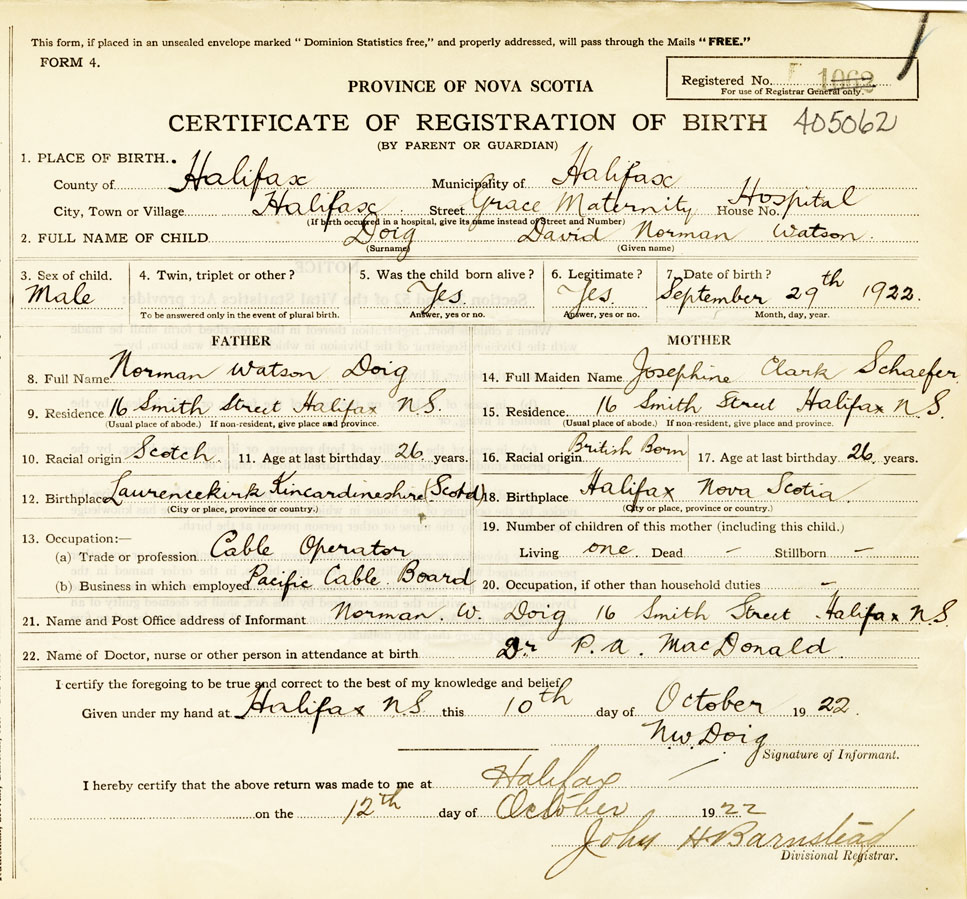 This form, if placed in an unsealed envelope marked "Dominion Statistics free," and properly addressed, will pass through the Mails "FREE."
FORM 4.
PROVINCE OF NOVA SCOTIA
Registered No. 1062
For use of Registrar General only.
CERTIFICATE OF REGISTRATION OF BIRTH 405062
(BY PARENT OR GUARDIAN)
1. PLACE OF BIRTH..
County of Halifax Municipality of Halifax
City, Town or Village Halifax Street Grace Maternity House No. Hospital
(If birth occurred in a hospital, give its name instead of Street and Number)
2. FULL NAME OF CHILD Doig David Norman Watson
(Surname) (Given name)
3. Sex of child. 4. Twin, triplet or other? 5. Was the child born alive? 6. Legitimate? 7. Date of birth?
Male Yes. Yes. September 29th 1922.
To be answered only in the event of plural birth. Answer, yes or no. Answer, yes or no. Month, day, year.
FATHER MOTHER
8. Full Name Norman Watson Doig 14. Full Maiden Name Josephine Clark Schaefer
9. Residence 16 Smith Street Halifax N.S. 15. Residence. 16 Smith Street Halifax N.S.
(Usual place of abode.) If non-resident, give place and province. (Usual place of abode.) If non-resident, give place and province.
10. Racial origin Scotch. 11. Age at last birthday 26. years. 16. Racial origin British Born 17. Age at last birthday 26. years.
12. Birthplace Laurencekirk Kincardineshire (Scotd) 18. Birthplace Halifax Nova Scotia
(City or place, province or country.) (City or place, province or country.)
13. Occupation:— 19. Number of children of this mother (including this child.)
(a) Trade or profession Cable Operator Living one. Dead – Stillborn –
(b) Business in which employed Pacific Cable Board 20. Occupation, if other than household duties –
21. Name and Post Office address of Informant Norman. W. Doig 16 Smith Street Halifax N.S.
22. Name of Doctor, nurse or other person in attendance at birth Dr P. A. MacDonald.
I certify the foregoing to be true and correct to the best of my knowledge and belief.
Given under my hand at Halifax N.S. this 10th day of October 1922.
N.W. Doig
Signature of Informant.
I hereby certify that the above return was made to me at Halifax
on the 12th day of October 1922
John H Barnstead
Divisional Registrar.